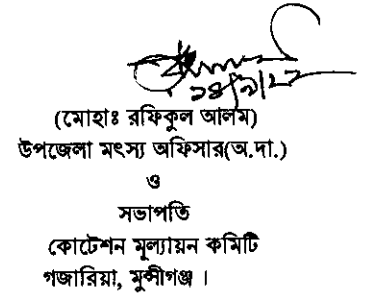 (মোহাঃ রফিকুল আলম)
উপজেলা মৎস্য অফিসার(অ.দা.)
ও
সভাপতি
কোটেশন মূল্যায়ন কমিটি
গজারিয়া, মুন্সীগঞ্জ ।